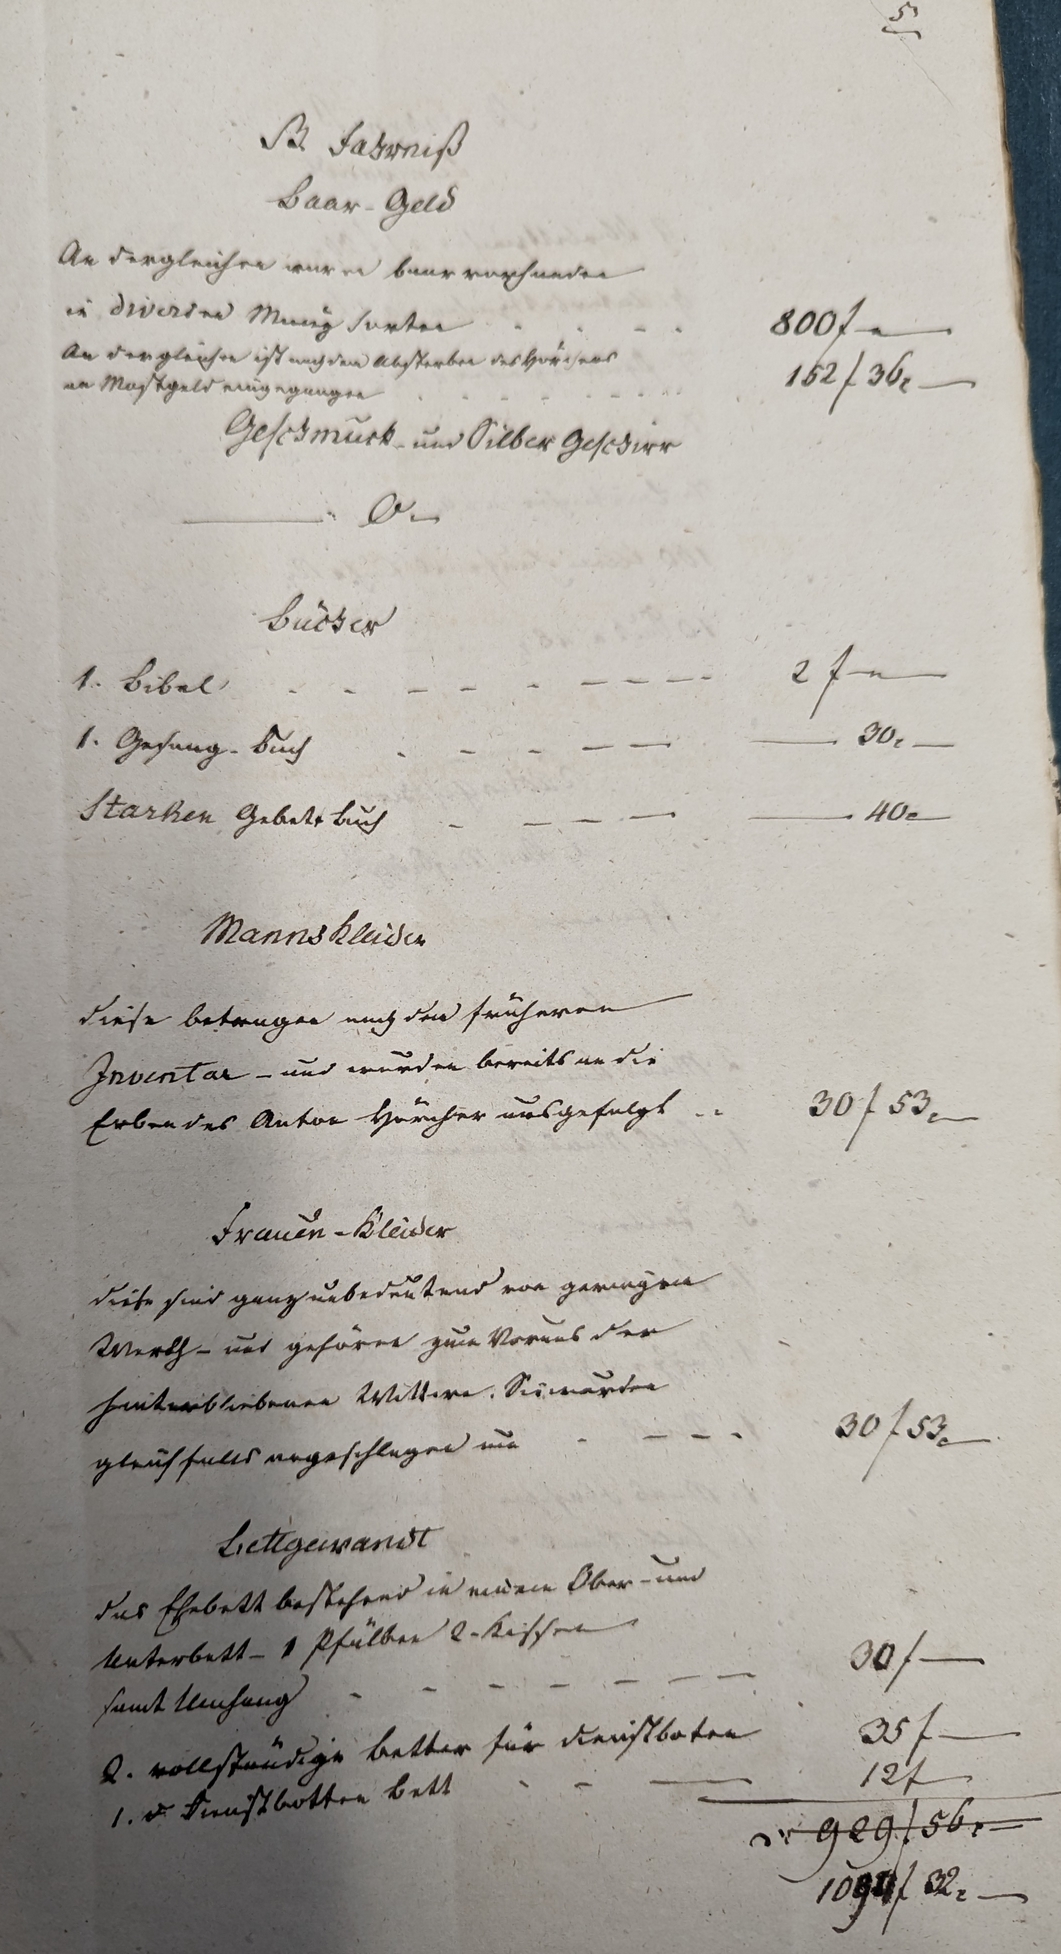 5.
B. Fahrniß
Baar-Geld
An dergleichen waren baar vorhanden
in diversen Münz Sorten - - - - 800 f -
An dergleichen ist nach dem Absterben des Hörchers
an Mostgeld eingegangen - - - - 152 f 36.
Geschmuck und Silber Geschirr
O.
Bücher
1. Bibel - - - - 2 f -
1. Gesang-Buch - - - - 30.
Starken Gebett Buch - - - - 40.
Manns Kleider
diese betragen nach dem früheren
Inventar - und wurden bereits an die
Erben des Anton Hörcher ausgefolgt - - 30 f 53.
Frauen-Kleider
diese sind ganz unbedeutend von geringem
Werth - und gehören zum Voraus der
hinterbliebenen Wittwe. Sie wurden
gleichfalls angeschlagen um - - - - 30 f 53.
Bettgewandt
das Ehebett bestehend in einem Ober- und
Unterbett - 1 Pfülben 2 Kissen
samt Umhang - - - - 30 f -
2. vollständige Better für Dienstboten 35 f -
1. Dienstbotten Bett - - - 12 f
929 f 56.
32.